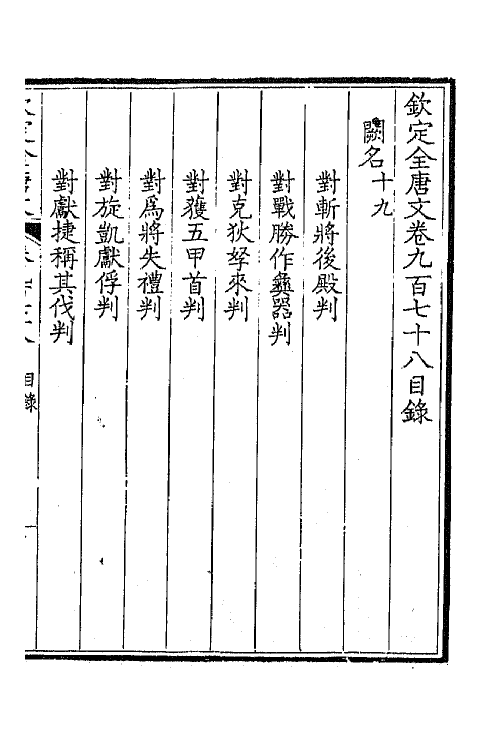 欽定全唐文卷九百七十八目錄
闕名十九
對斬將後殿判
對戰勝作彝器判
對克狄孥來判
對獲五甲首判
對爲將失禮判
對旋凱獻俘判
對獻捷稱其伐判
目錄
一